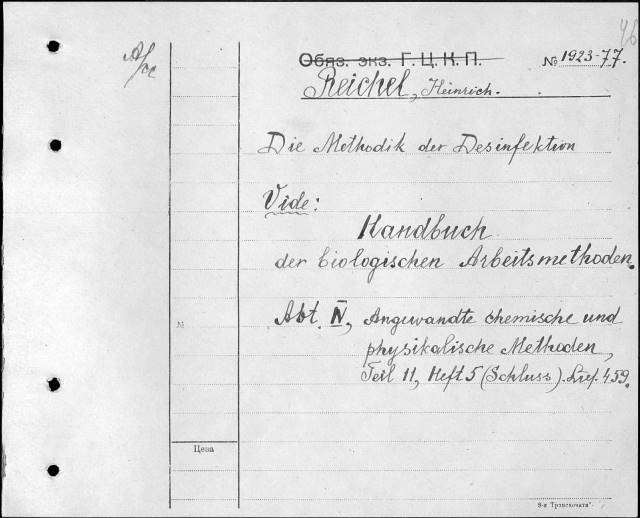 Обяз. экз. Г. Ц. К. П. № 1923-77.
Reichel, Heinrich.
Die Methodik der Desinfektion
Vide:
Handbuch
der biologischen Arbeitsmethoden.
Abt. IV, Angewandte chemische und
physikalische Methoden,
Teil 11, Heft 5 (Schluss). Lief. 459.
№
Цена
8-я "Транспечати".